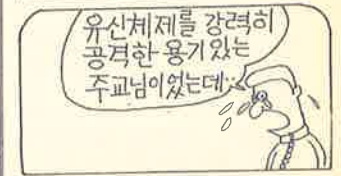 유신체제를 강력히
공격한 용기있는
주교님이었는데…